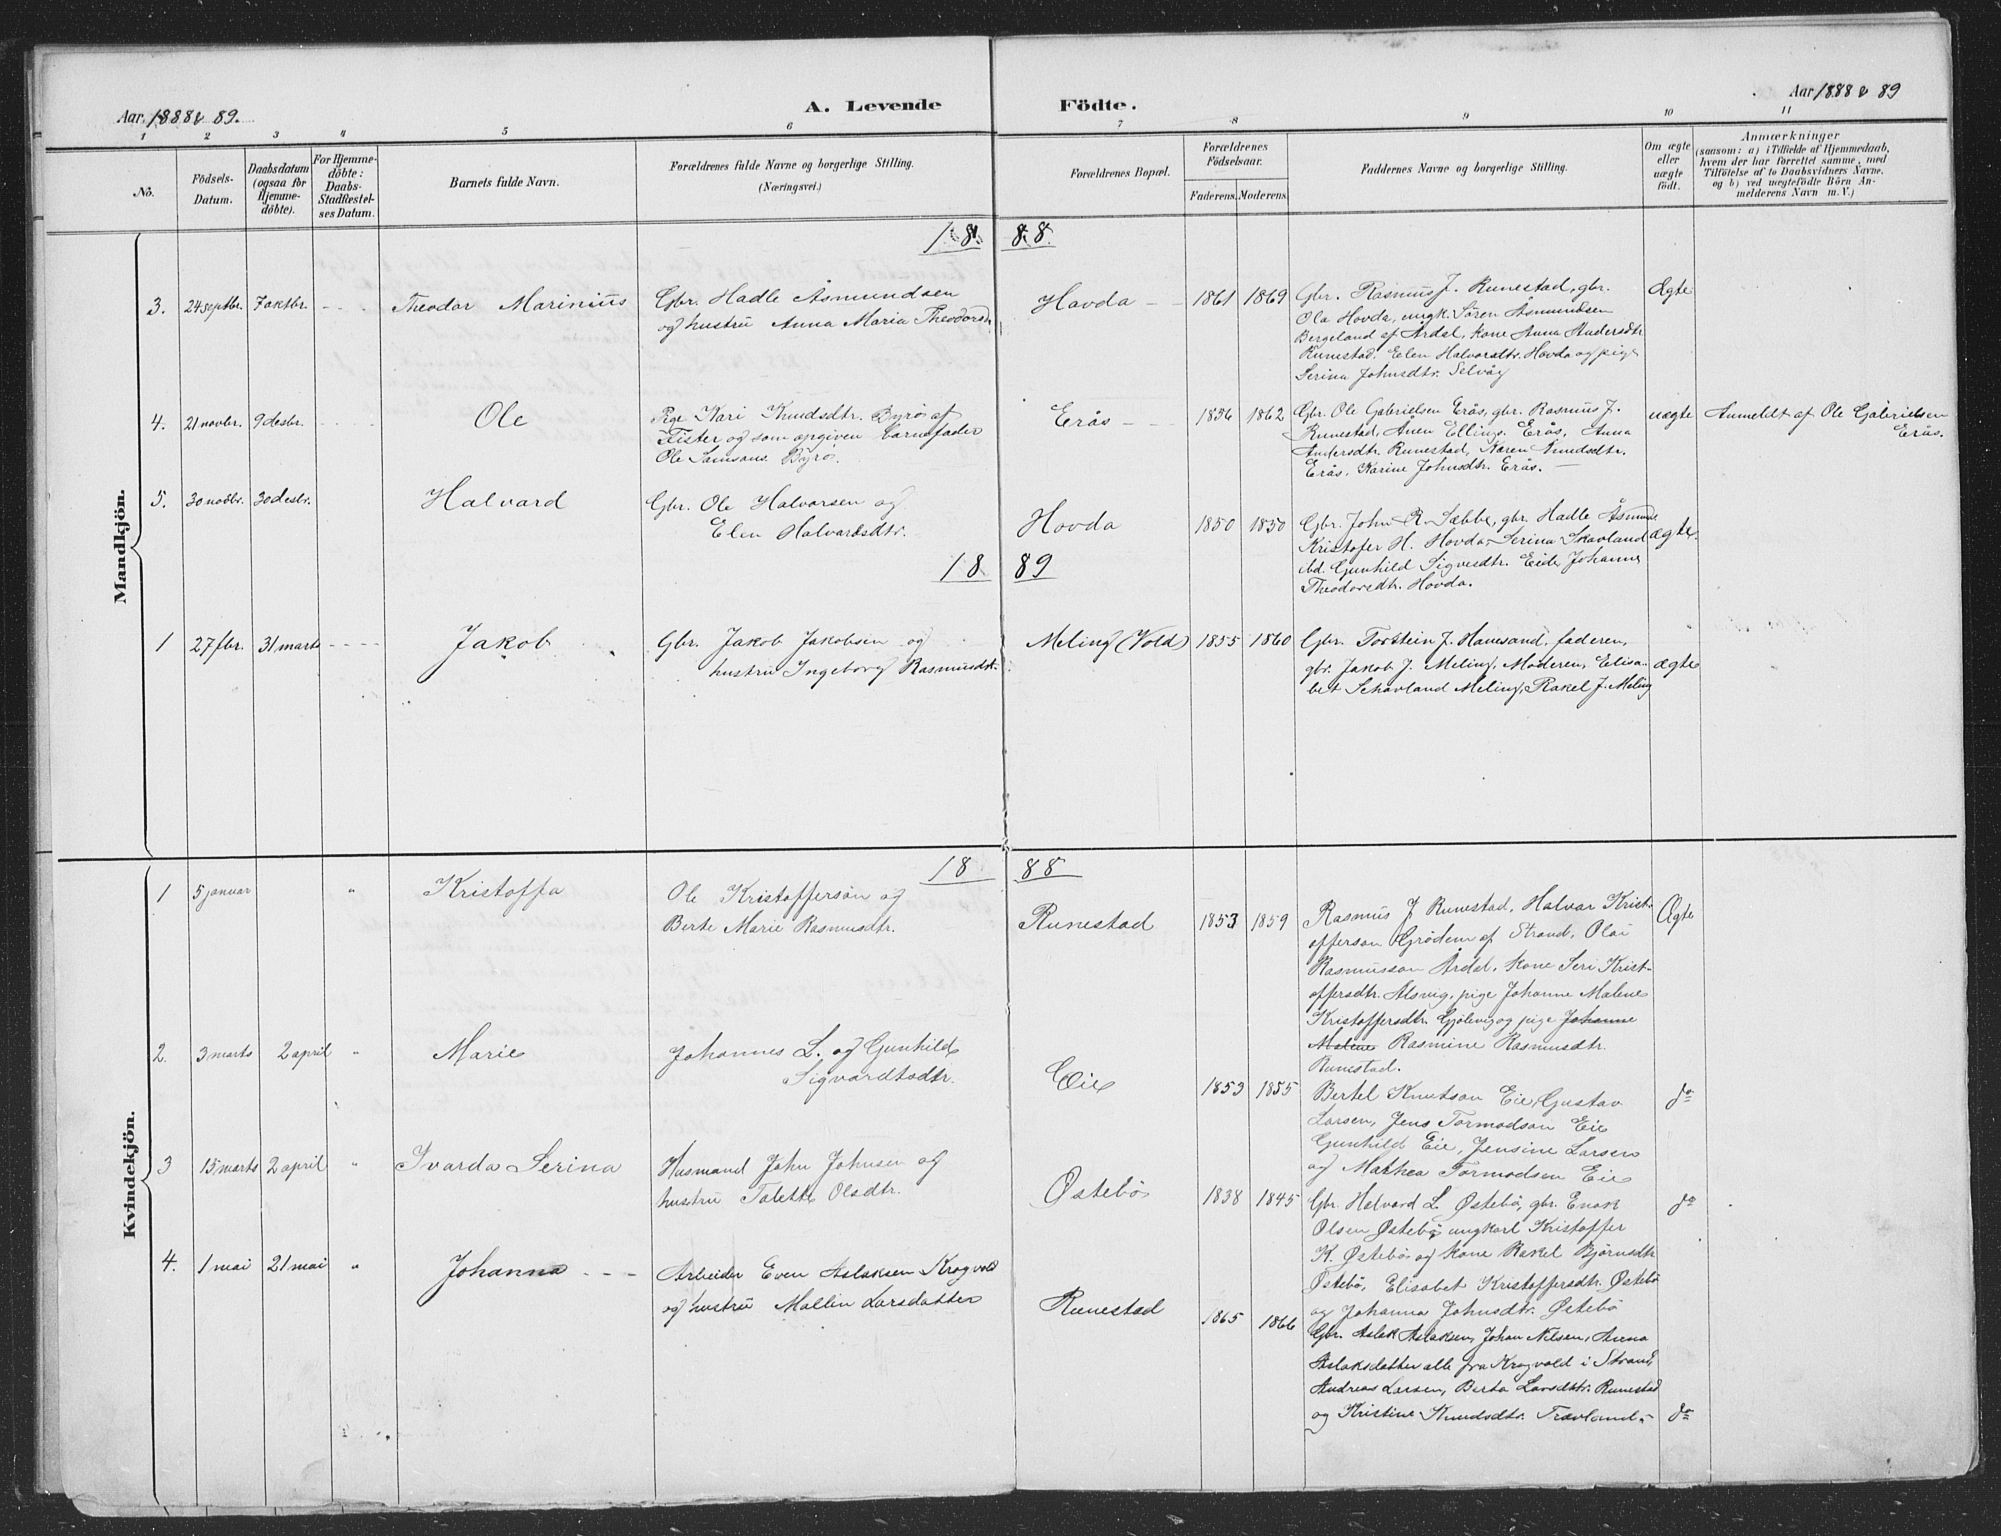 Aar 1888 & 89.
A. Levende Födte.
Aar 1888 & 89
1 2 3 4 5 6 7 8 9 10 11
No.
Födsels-Datum.
Daabsdatum (ogsaa for Hjemme-döbte).
For Hjemme-döbte: Daabs-Stadfæstel-ses Datum.
Barnets fulde Navn.
Forældrenes fulde Navne og borgerlige Stilling.
(Næringsvei.)
Forældrenes Bopæl.
Forældrenes Födselsaar.
Faderens. Moderens.
Faddernes Navne og borgerlige Stilling.
Om ægte eller uægte födt.
Anmærkninger
(saasom: a) i Tilfælde af Hjemmedaab,
hvem der har forrettet samme, med
Tilföielse af to Daabsvidners Navne,
og b) ved uægtefödte Börn An-
melderens Navn m. V.)
Mandkjön.
1888.
3. 24 septbr. 7 oktbr. Theodor Marinius
Gbr. Hadle Åsmundsen
og hustru Anna Maria Theodorsd.
Hovda 1861 1869
Gbr. Rasmus J. Runestad, gbr.
Ola Hovda, ungk. Sören Åsmundsen
Bergeland af Årdal, kone Anna Andersdtr.
Runestad, Elen Halvorsdtr. Hovda og pige
Serina Johnsdtr. Selvåg
Ægte
4. 21 novbr. 9 desbr. Ole
Pige Kari Knudsdtr. Byrø af
Fister og som opgiven barnefader
Ole Samsons. Byrø.
Erås 1836 1862
Gbr. Ole Gabrielsen Erås, gbr. Rasmus J.
Runestad, Anen Ellings. Erås, Anna
Andersdtr. Runestad, Karen Knudsdtr.
Erås, Karine Johnsdtr. Erås.
uægte
Anmeldt af Ole Gabrielsen
Erås.
5. 30 novbr. 30 desbr. Halvard
Gbr. Ole Halvorsen og
Elen Halvardsdtr.
Hovda 1850 1850
Gbr. John R. Sæbbe, gbr. Hadle Åsmunds
Kristofer H. Hovda, Serina Skavland
ibd. Gunhild Sigvesdtr. Eide, Johanne
Theodorsdtr. Hovda.
ægte.
1889
1 27 fbr. 31 marts Jakob
Gbr. Jakob Jakobsen og
hustru Ingeborg Rasmusdtr.
Meling (Vold) 1855 1860
Gbr. Torstein J. Hanesand, faderen,
gbr. Jakob J. Meling, Moderen, Elisa-
bet Schavland Meling, Rakel J. Meling
ægte
Kvindekjön.
1888
1 5 januar " Kristoffa
Ole Kristoffersön og
Berte Marie Rasmusdtr.
Runestad 1853 1859
Rasmus J Runestad, Halvar Krist-
offerson Grødem af Strand, Olai
Rasmusson Årdal, kone Seri Krist-
offersdtr. Alsvig, pige Johanne Malene
Kristoffersdtr. Gjølevig og pige Johanne
Malene Rasmine Rasmusdtr.
Runestad.
Ægte
2. 3 marts 2 april " Marie
Johannes L. og Gunhild
Sigvardtsdtr.
Eie 1853 1855
Bertel Knutson Eie, Gustav
Larsen, Jens Tormodson Eie
Gunhild Eie, Jensine Larsen
og Mathea Tormodsen Eie
do
3 15 marts 2 april " Ivarda Serina
Husmand John Johnsen og
hustru Talette Olsdtr.
Østebø 1838 1845
Gbr. Halvard L. Østebø, gbr. Enok
Olsen Østebø, ungkarl Kristoffer
K. Østebø og kone Rakel Bjørnsdtr
Østebø, Elisabet Kristoffersdtr. Østebø
og Johanna Johnsdtr. Østebø
do
4. 1 mai 21 mai " Johanna
Arbeider Even Aslaksen Krogvold
og hustru Mallin Larsdatter
Runestad 1865 1866
Gbr. Aslak Aslaksen, Johan Nilsen, Anna
Aslaksdatter alle fra Krogvold i Strand,
Andreas Larsen, Berta Larsdtr. Runestad
og Kristine Knudsdtr. Travland.
do